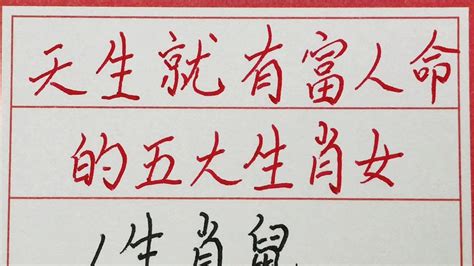 天生就有富人命
的五大生肖女
1生肖鼠